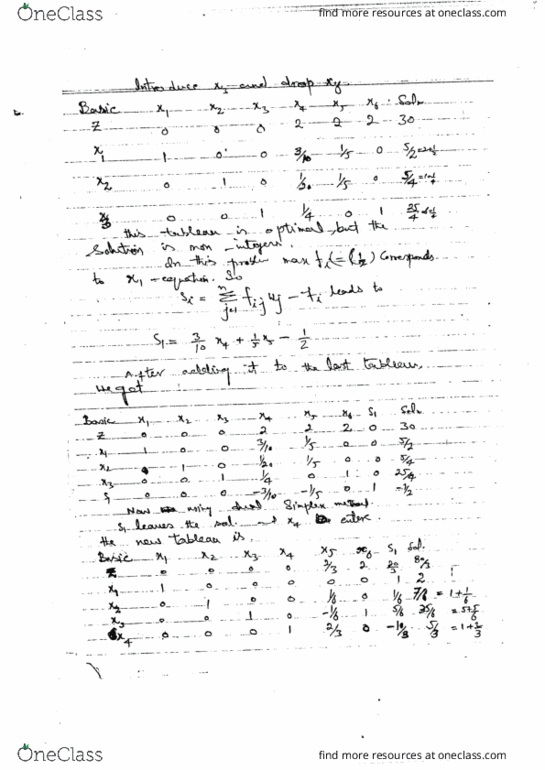 OneClass
find more resources at oneclass.com
Introduce x3 and drop xy
Basic x1 x2 x3 x4 x5 x6 Soln
Z 0 0 0 2 2 2 30
x1 1 0 0 3/10 1/5 0 5/2
x2 0 1 0 1/20 1/5 0 5/4
x3 0 0 1 1/4 0 1 25/4
this tableau is optimal, but the
Solution is non-integers.
In this problem max fi (= 1/2) Corresponds
to x1 - equation. So
Si = Σ fij yj - fi leads to
S1 = 3/10 x4 + 1/5 x5 - 1/2
After adding it to the last tableau,
we got
Basic x1 x2 x3 x4 x5 x6 S1 Soln
Z 0 0 0 2 2 2 0 30
x1 1 0 0 3/10 1/5 0 0 5/2
x2 0 1 0 1/20 1/5 0 0 5/4
x3 0 0 1 1/4 0 1 0 25/4
S1 0 0 0 -3/10 -1/5 0 1 -1/2
Now using dual Simplex method
S1 leaves the sol. and x4 enter.
the new tableau is.
Basic x1 x2 x3 x4 x5 x6 S1 Sol.
Z 0 0 0 0 2/3 2 20/3 80/3
x1 1 0 0 0 0 0 1 2
x2 0 1 0 0 1/6 0 1/6 7/6 = 1+1/6
x3 0 0 1 0 -1/6 1 5/6 35/6 = 5+5/6
x4 0 0 0 1 2/3 0 -10/3 5/3 = 1+2/3
OneClass
find more resources at oneclass.com